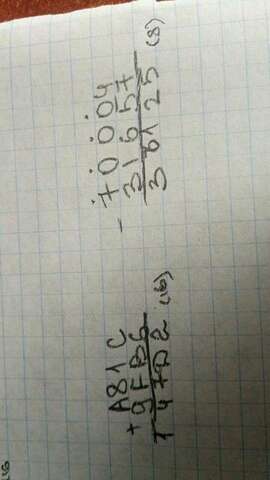 + A81C
9FB6
147D2 (16)
- 70004
31657
36125 (8)